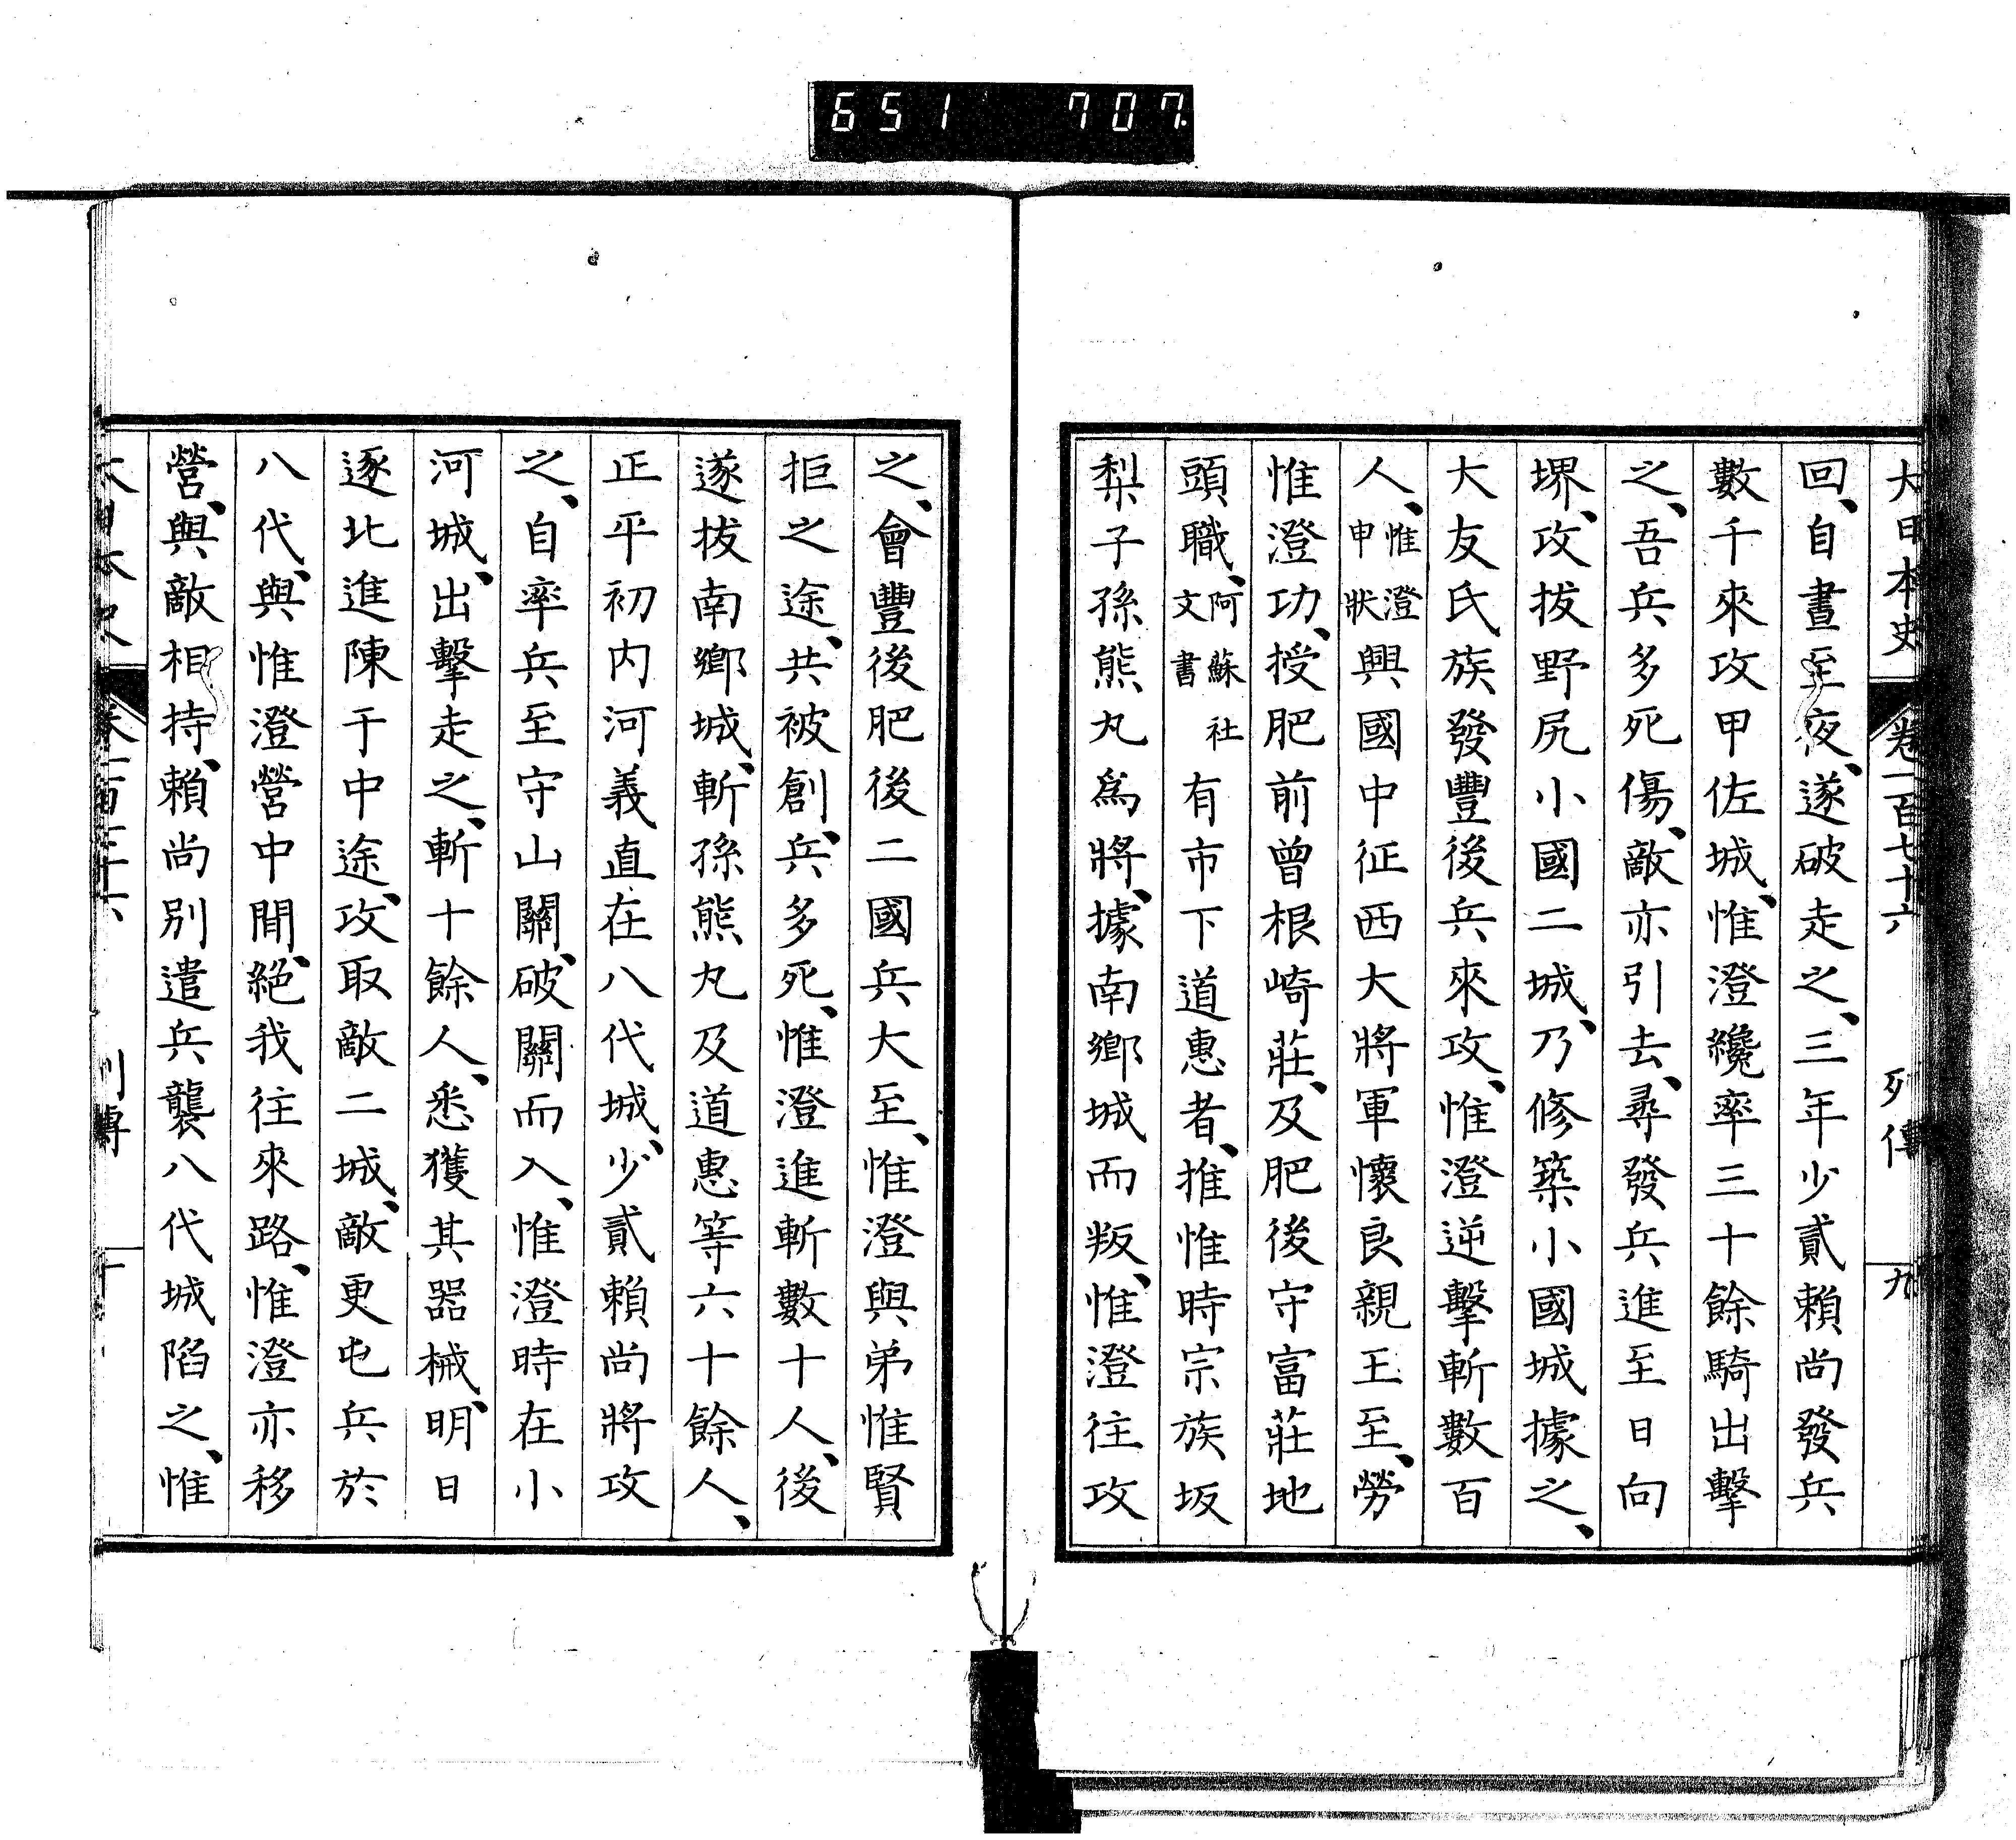 651 707
大日本史 卷一百七十六 列傳 九
回、自晝至夜、遂破走之、三年少貳賴尚發兵
數千來攻甲佐城、惟澄纔率三十餘騎出擊
之、吾兵多死傷、敵亦引去、尋發兵進至日向
堺、攻拔野尻小國二城、乃修築小國城據之、
大友氏族發豐後兵來攻、惟澄逆擊斬數百
人、惟澄申狀興國中征西大將軍懷良親王至、勞
惟澄功、授肥前曾根崎莊、及肥後守富莊地
頭職、阿蘇社文書有市下道惠者、推惟時宗族坂
梨子孫熊丸爲將、據南鄉城而叛、惟澄往攻
之、會豐後肥後二國兵大至、惟澄與弟惟賢
拒之途、共被創、兵多死、惟澄進斬數十人、後
遂拔南鄉城、斬孫熊丸及道惠等六十餘人、
正平初內河義直在八代城、少貳賴尚將攻
之、自率兵至守山關、破關而入、惟澄時在小
河城、出擊走之、斬十餘人、悉獲其器械、明日
逐北進陳于中途、攻取敵二城、敵更屯兵於
八代、與惟澄營中間、絕我往來路、惟澄亦移
營、與敵相持、賴尚別遣兵襲八代城陷之、惟
大日本史 列傳 十